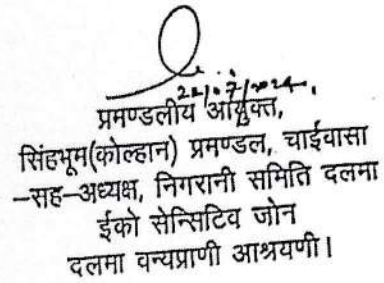 22/07/2024
प्रमण्डलीय आयुक्त,
सिंहभूम(कोल्हान) प्रमण्डल, चाईबासा
–सह–अध्यक्ष, निगरानी समिति दलमा
ईको सेन्सिटिव जोन
दलमा वन्यप्राणी आश्रयणी।